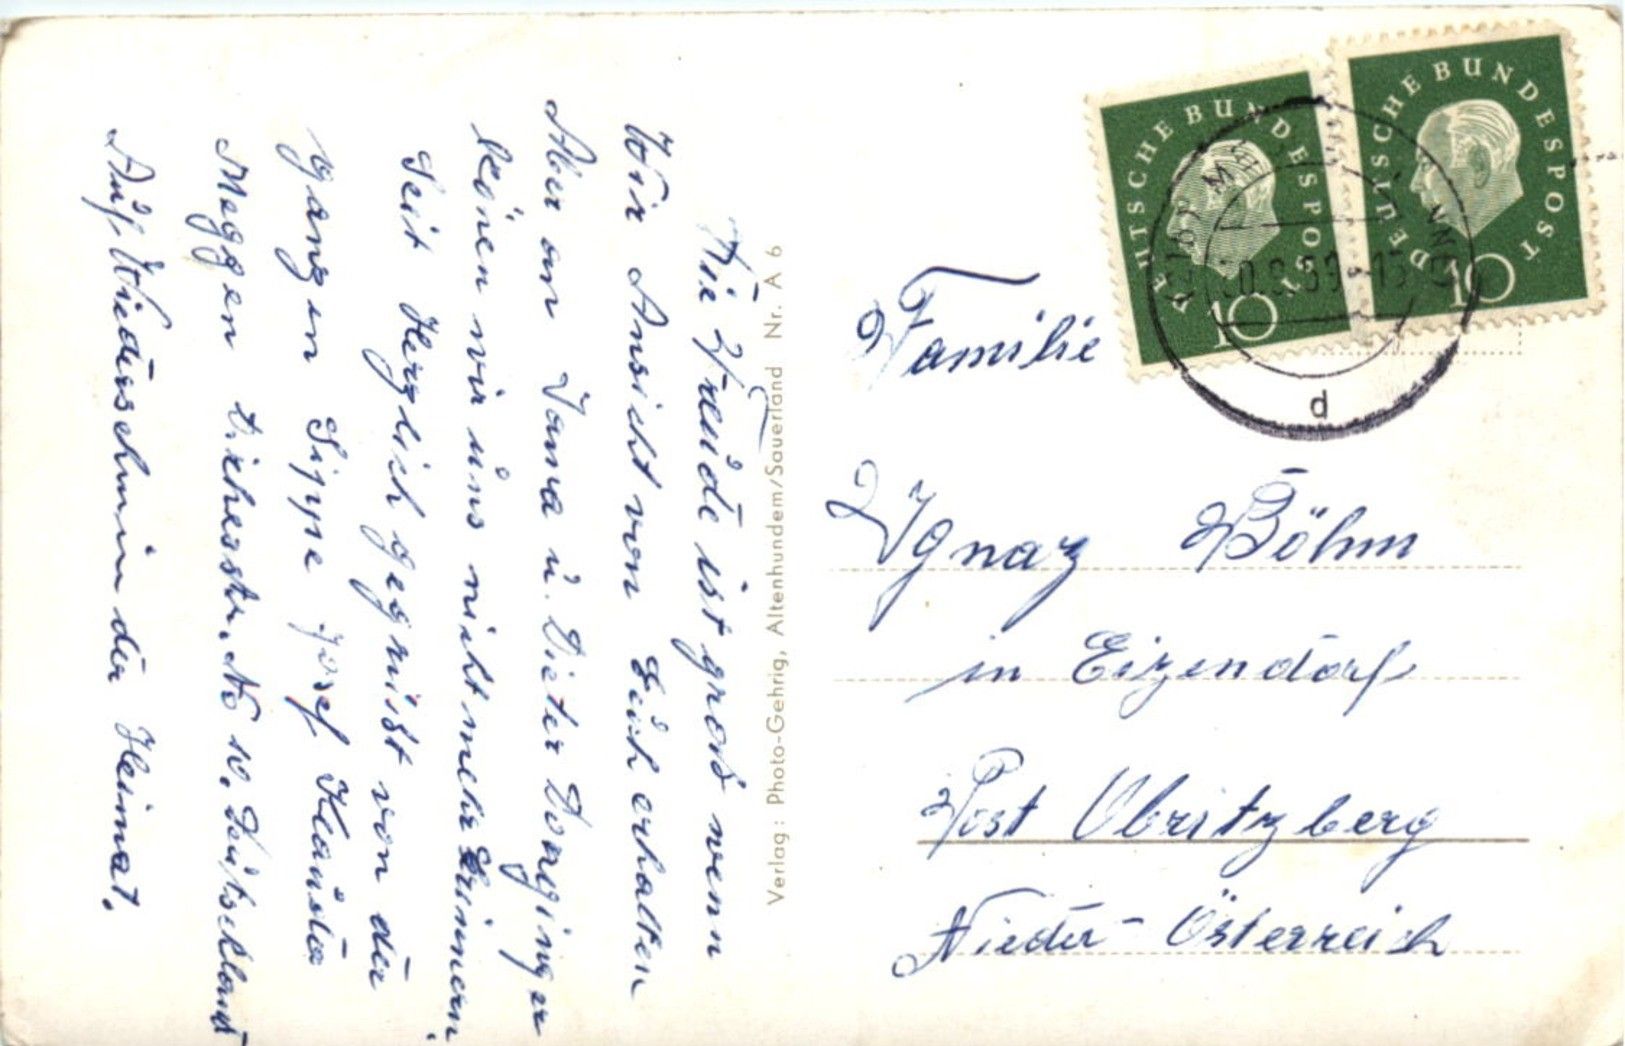 Die Freude ist gross wenn
Wir Ansicht von Euch erhalten
Aber an Jana u. Dieter
könen wir uns nicht mehr Erinnern
Seit Herzlich gegrüist von der
ganzen Sippe Josef
Meggen No 10. Deutschland
Auf Wiedersehmin der Heimat.
Verlag: Photo-Gehrig, Altenhundem/Sauerland Nr. A 6
DEUTSCHE BUNDESPOST
10
DEUTSCHE BUNDESPOST
10
d
Familie
Ignaz Böhm
in Eizendorf
Post Obritzberg
Nieder-Österreich